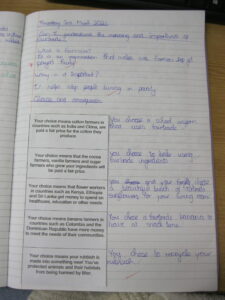 Can I understand the meaning and importance of
fairtrade?
What is fairtrade?
It is an organisation that makes sure farmers get
payed fairly.
Why is it important?
It helps stop people living in poverty
Choices and consequences
Your choice means cotton farmers in
countries such as India and China, are
paid a fair price for the cotton they
produce.
You choose a school
that uses fairtrade
Your choice means that the cocoa
farmers, vanilla farmers and sugar
farmers who grew your ingredients will
be paid a fair price.
You choose to bake using
fairtrade ingredients
Your choice means that flower workers
in countries such as Kenya, Ethiopia
and Sri Lanka get money to spend on
healthcare, education or other needs.
You your family
a bunch of fairtrade
for your living room
Your choice means banana farmers in
countries such as Colombia and the
Dominican Republic have more money
to meet the needs of their communities.
You chose a fairtrade banana to
have at snack time
Your choice means your rubbish is
made into something new! You've
protected animals and their habitats
from being harmed by litter.
You choose to recycle your
rubbish.